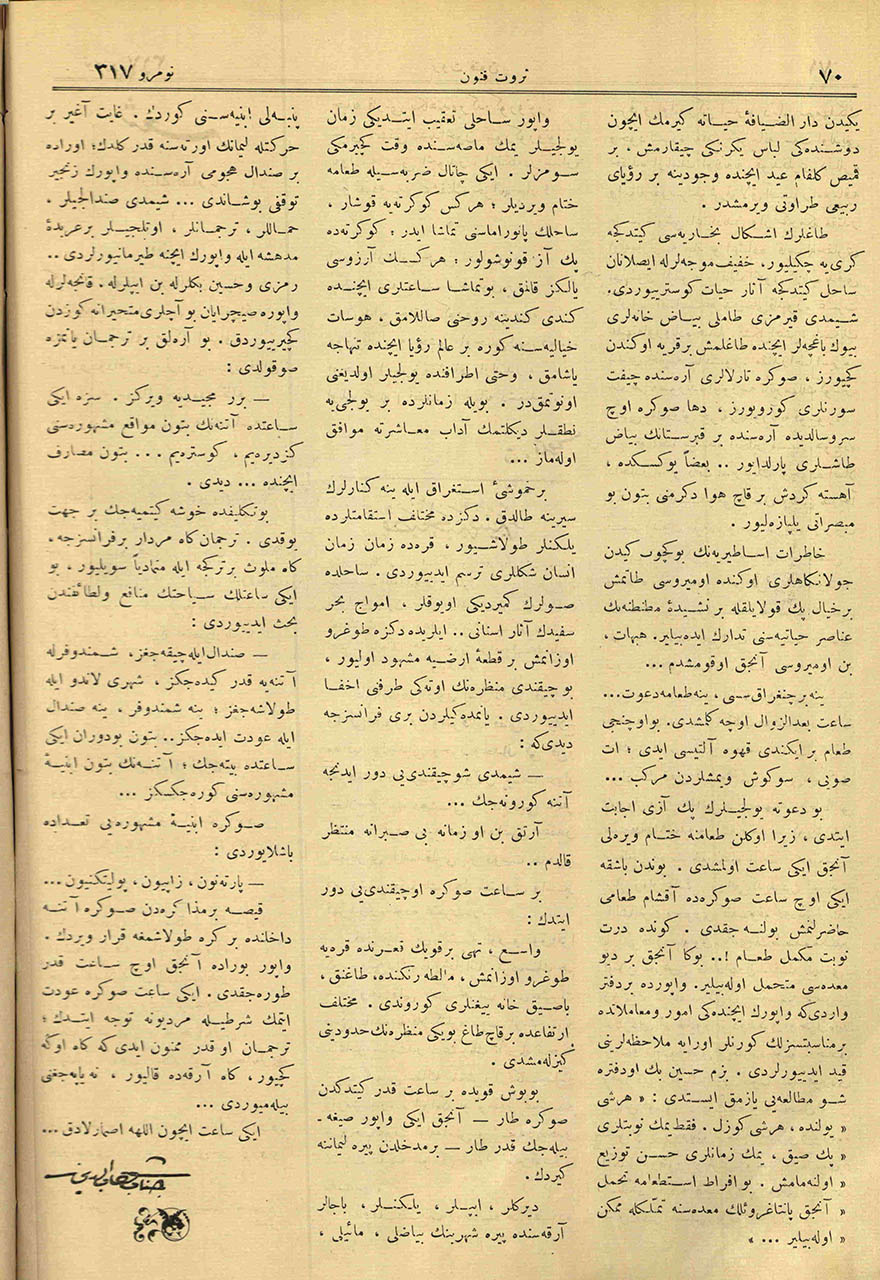 ٧٠
ثروت فنون
نومرو ٣١٧
يكيدن دار الضيافۀ حياته كيرمك ايچون
دوشنده‌كى لباس يكرنكى چيقارمش ، بر
قميص كلفام عيد ايچنده وجودينه بر رؤياى
ربيعى طراوتى ويرمشدر .
طاغلرك اشكال بخاريه‌سى كيتدكجه
كرى‌يه چكيليور، خفيف موجه‌لرله ايصلانان
ساحل كيتدكجه آثار حيات كوسترييوردى.
شيمدى قيرمزى طاملى بياض خانه‌لرى
بيوك باغچه‌لر ايچنده طاغلمش برقريه اوكندن
كچيورز ، صوكره تارلالرى آره‌سنده چيفت
سورنلرى كورويورز ، دها صوكره اوچ
سرو سالديده آره‌سنده بر قبرستانك بياض
طاشلرى پارلدايور .. بعضاً يوكسكده ،
آهسته كردش بر قاچ هوا دكرمنى بتون بو
مبصراتى يلپازه‌ليور .
خاطرات اساطيريه‌نك بوكچوب كيدن
جولانكاهلرى اوكنده اوميروسى طانمش
برخيال پك قولايلقله بر نشيدۀ مطنطنه‌نك
عناصر حياتيه‌سنى تدارك ايده‌بيلير. هيهات ،
بن اوميروسى آنجق اوقومشدم ...
ينه برچنغراق سسى ، ينه طعامه دعوت...
ساعت بعدالزوال اوچه كلمشدى. بواوچنجى
طعام بر ايكندى قهوه آلتيسى ايدى ؛ ات
صويى ، سوكوش ويمشلردن مركب ...
بو دعوته يولجيلرك پك آزى اجابت
ايتدى ، زيرا اوكلن طعامنه ختام ويره‌لى
آنجق ايكى ساعت اولمشدى . بوندن باشقه
ايكى اوچ ساعت صوكره‌ده آقشام طعامى
حاضرلنمش بولنه جقدى . كونده درت
نوبت مكمل طعام !.. بوكا آنجق بر ديو
معده‌سى متحمل اوله‌بيلير. واپورده بردفتر
واردى‌كه واپورك ايچنده‌كى امور ومعاملاتده
برمناسبتسزلك كورنلر اورايه ملاحظه‌لرينى
قيد ايدييورلردى . بزم حسين بك اودفتره
شو مطالعه‌يى يازمق ايستدى : « هرشى
« يولنده ، هرشى كوزل . فقط يمك نوبتلرى
« پك صيق ، يمك زمانلرى حسن توزيع
« اولنه‌مامش . بو افراط استطعامه تحمل
« آنجق پانتاغروئلك معده‌سنه تملكله ممكن
« اوله‌بيلير ... »
واپور ساحلى تعقيب ايتديكى زمان
يولجيلر يمك ماصه‌سنده وقت كچيرمكى
سومزلر . ايكى چاتال ضربه‌سيله طعامه
ختام ويرديلر ؛ هركس كوكرته‌يه قوشار ،
ساحلك پانوراماسنى تماشا ايدر ؛ كوكرته‌ده
پك آز قونوشولور ؛ هركسك آرزوسى
يالكز قالمق ، بوتماشا ساعتلرى ايچنده
كندى كندينه روحنى صاللامق ، هوسات
خياليه‌سنه كوره بر عالم رؤيا ايچنده تنهاجه
ياشامق ، وحتى اطرافنده يولجيلر اولديغنى
اونوتمق‌در . بويله زمانلرده بر يولجى‌يه
نطقلر ديكلتمك آداب معاشرته موافق
اوله‌ماز ...
برخموشئ استغراق ايله ينه كنارلرك
سيرينه طالدق . دكزده مختلف استقامتلرده
يلكنلر طولاشييور ، قره‌ده زمان زمان
انسان شكللرى ترسم ايدييوردى . ساحلده
صولرك كميرديكى اويوقلر ، امواج بحر
سفيدك آثار اسنانى .. ايلريده دكزه طوغرو
اوزانمش بر قطعۀ ارضيه مشهود اوليور ،
بو چيقندى منظره‌نك اوته‌كى طرفنى اخفا
ايدييوردى . يانمده‌كيلردن برى فرانسزجه
ديدى‌كه :
— شيمدى شوچيقندى‌يى دور ايدنجه
آتنه كورونه‌جك ...
آرتق بن او زمانه بى صبرانه منتظر
قالدم ..
بر ساعت صوكره اوچيقندى‌يى دور
ايتدك :
واسع ، تهى برقويك تقعرنده قره‌يه
طوغرو اوزانمش ، مالطه رنكنده، طاغنق ،
باصيق خانه ييغنلرى كوروندى . مختلف
ارتفاعده برقاچ طاغ بويكى منظره‌نك حدودينى
كيزله‌مشدى .
بوبوش قويده بر ساعت قدر كيتدكدن
صوكره طار — آنجق ايكى واپور صيغه‌ـ
بيله‌جك قدر طار — برمدخلدن پيره ليماننه
كيردك .
ديركلر ، ايپلر ، يلكنلر ، باجالر
آرقه‌سنده پيره شهرينك بياضلى ، مائيلى ،
پنبه‌لى ابنيه‌سنى كوردك . غايت آغير بر
حركتله ليمانك اورته‌سنه قدر كلدك؛ اوراده
بر صندال هجومى آره‌سنده واپورك زنجير
توقفى بوشاندى ... شيمدى صندالجيلر ،
حماللر ، ترجمانلر ، اوتلجيلر برعربدۀ
مدهشه ايله واپورك ايچنه طيرمانيورلردى ..
رمزى وحسين بكلرله بن ايپلرله . قانجه‌لرله
واپوره صيچرايان بو آچلرى متحيرانه كوزدن
كچيرييوردق . بو آره‌لق بر ترجمان يانمزه
صوقولدى :
— بزر مجيديه ويركز . سزه ايكى
ساعتده آتنه‌نك بتون مواقع مشهوره‌سنى
كزديره‌يم ، كوستره‌يم ... بتون مصارف
ايچنده ... ديدى .
بوتكليفده خوشه كيتميه‌جك بر جهت
يوقدى . ترجمان كاه مردار برفرانسزجه ،
كاه ملوث برتركجه ايله متمادياً سويليور ، بو
ايكى ساعتلك سياحتك منافع ولطائفندن
بحث ايدييوردى :
— صندال ايله چيقه‌جغز، شمندوفرله
آتنه‌يه قدر كيده‌جكز ، شهرى لاندو ايله
طولاشه‌جغز ؛ ينه شمندوفر ، ينه صندال
ايله عودت ايده‌جكز.. بتون بودوران ايكى
ساعتده بيته‌جك ؛ آتنه‌نك بتون ابنيۀ
مشهوره‌سنى كوره‌جكسكز ...
صوكره ابنيۀ مشهوره‌يى تعداده
باشلايوردى :
— پارته‌نون ، زاپيون ، پوليتكنيون ...
قيصه برمذاكره‌دن صوكره آتنه
داخلنده بر كره طولاشمغه قرار ويردك .
واپور بوراده آنجق اوچ ساعت قدر
طوره‌جقدى . ايكى ساعت صوكره عودت
ايتمك شرطيله مرديونه توجه ايتدك ؛
ترجمان او قدر ممنون ايدى‌كه كاه اوكه
كچيور ، كاه آرقه‌ده قاليور ، نه‌ياپه‌جغنى
بيله‌ميوردى ...
ايكى ساعت ايچون اللهه اصمارلادق ...
جناب شهاب الدين